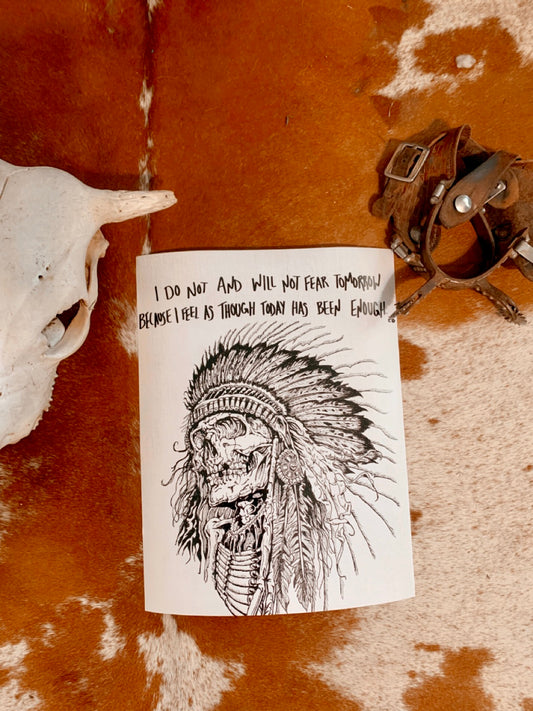 I DO NOT AND WILL NOT FEAR TOMORROW
BECAUSE I FEEL AS THOUGH TODAY HAS BEEN ENOUGH